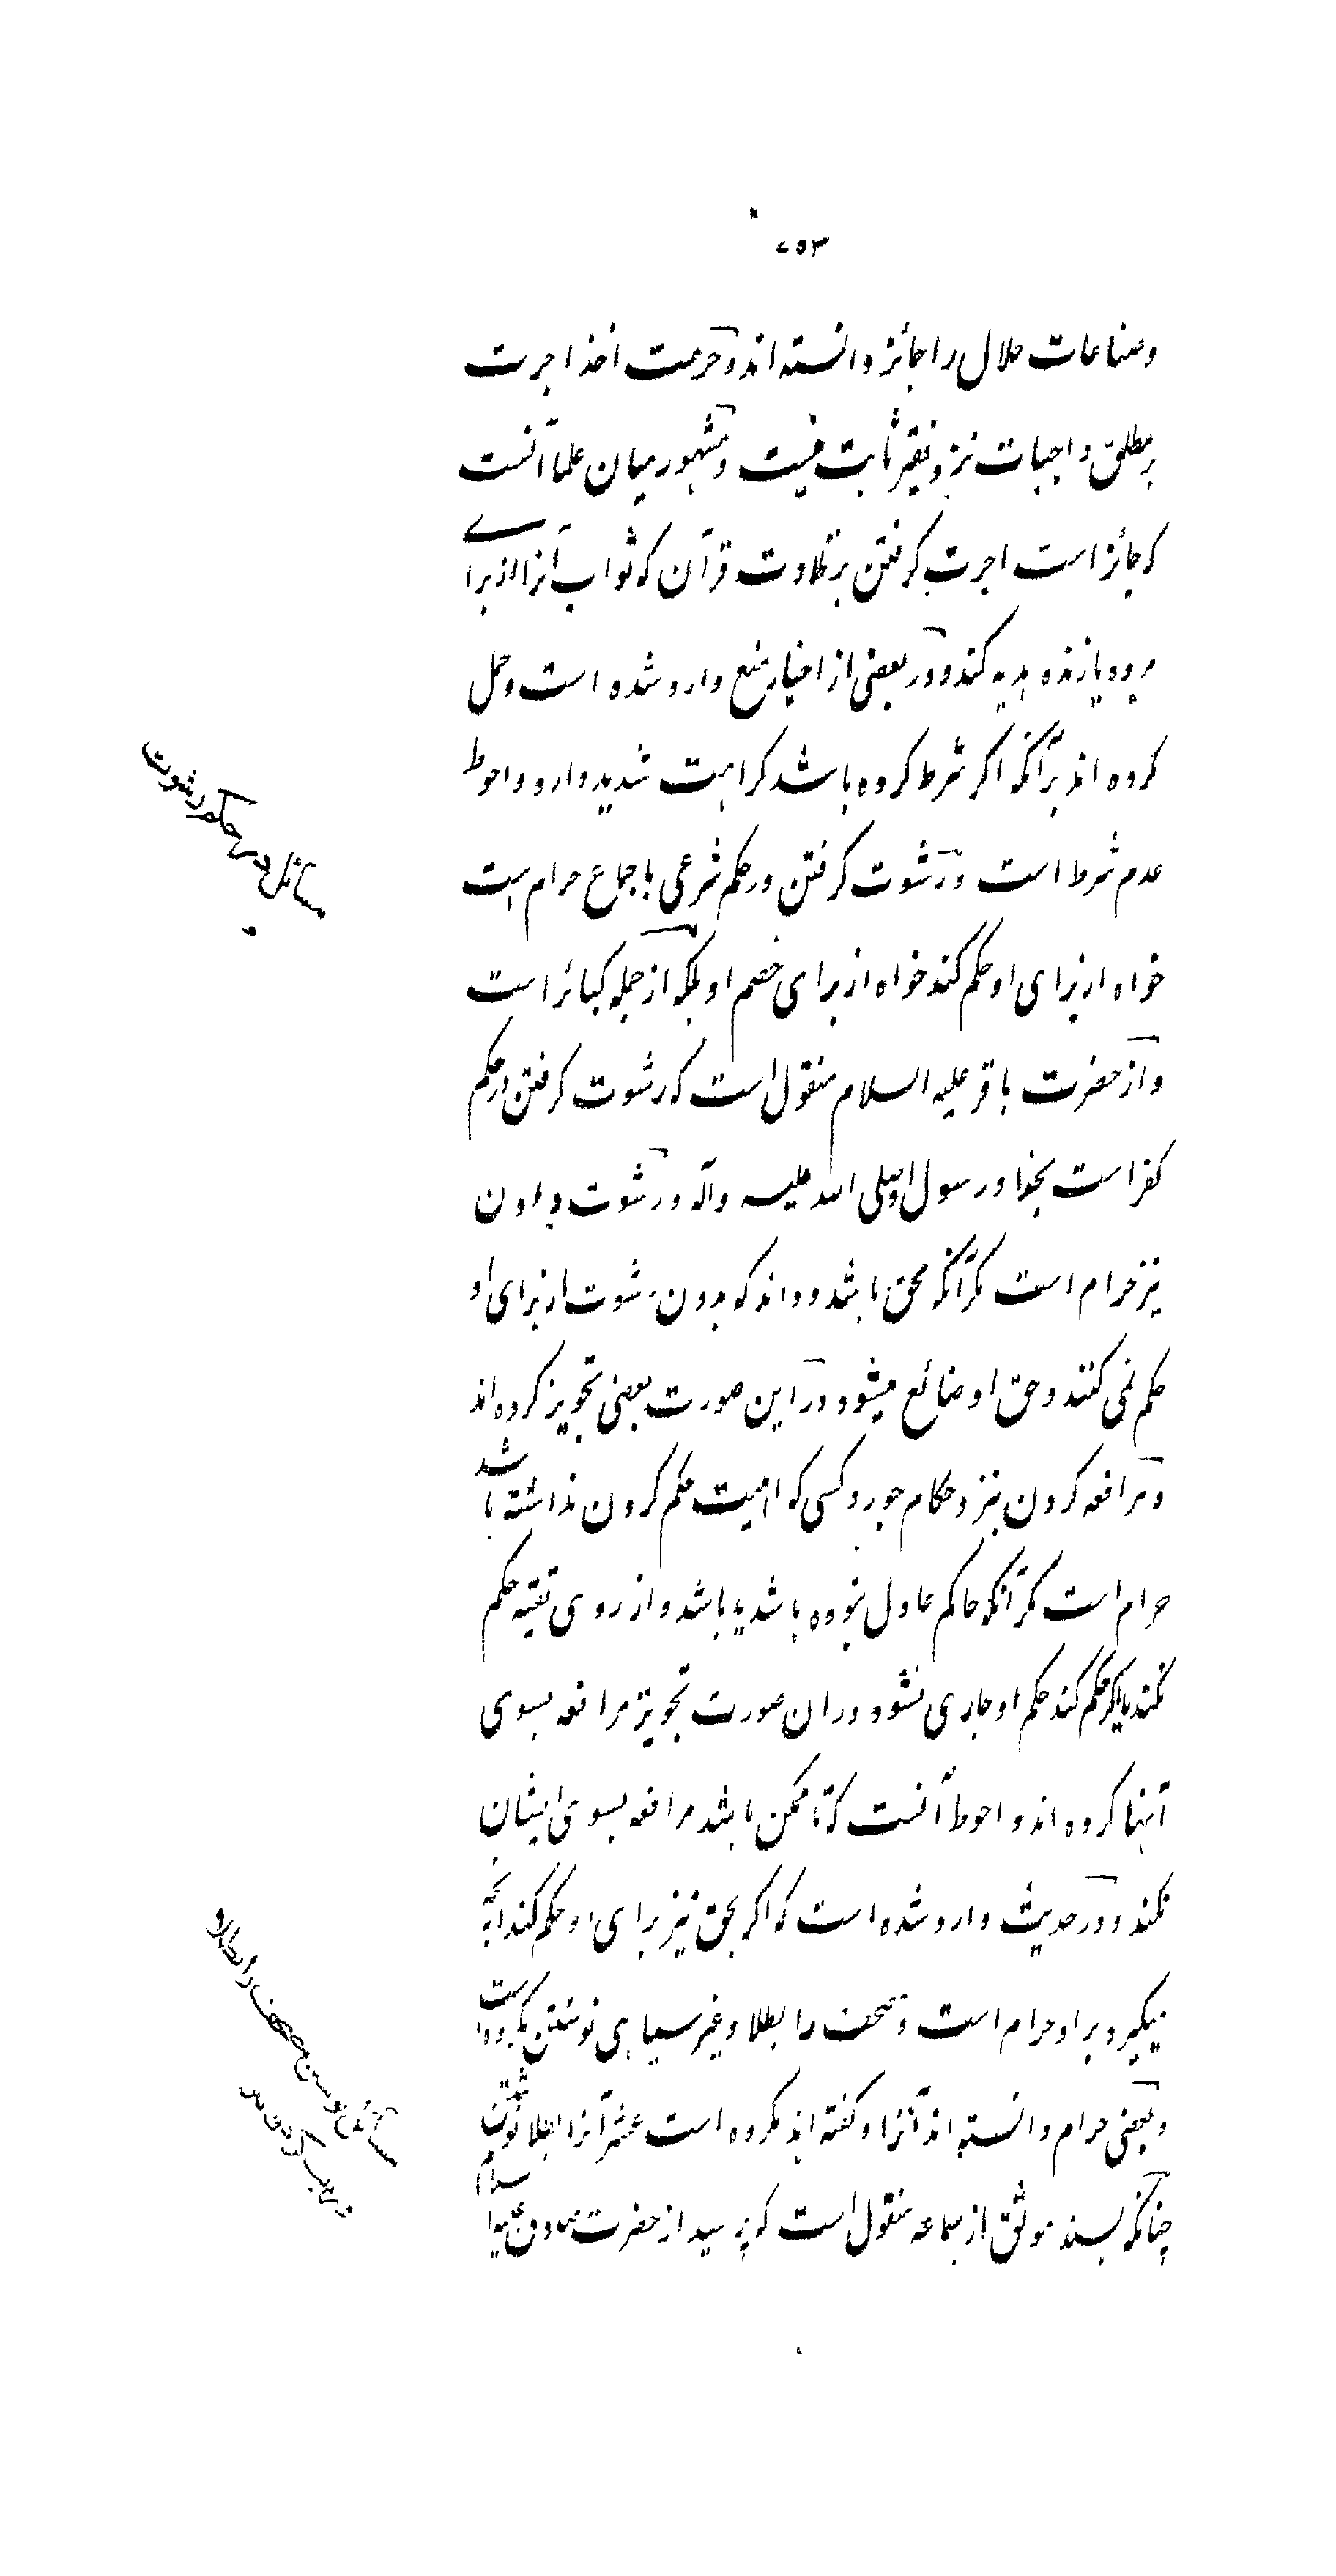 ۲۵۳
وصناعات حلال را جائز دانسته اند و حرمت اخذ اجرت
بر مطلق واجبات نزد فقیر ثابت نیست و مشهور میان علما آنست
که جائز است اجرت کرفتن بر تلاوت قرآن که ثواب آنرا از برای
مرده یا زنده هدیه کند و در بعضی از اخبار منع وارد شده است و حمل
کرده اند بر آنکه اکر شرط کرده باشد کراهت شدید دارد و احوط
عدم شرط است و رشوت کرفتن در حکم شرعی باجماع حرام است
خواه از برای او حکم کند خواه از برای خصم او بلکه از جمله کبائر است
و از حضرت باقر علیه السلام منقول است که رشوت کرفتن در حکم
کفر است بخدا و رسول او صلی الله علیه وآله و رشوت دادن
نیز حرام است مکر آنکه محق باشد و داند که بدون رشوت از برای او
حکم نمی کنند و حق او ضائع میشود در این صورت بعضی تجویز کرده اند
و مرافعه کردن بنزد حکام جور و کسی که اهلیت حکم کردن نداشته باشد
حرام است مکر آنکه حاکم عادل نبوده باشد یا باشد و از روی تقیه حکم
نکند یا اکر حکم کند حکم او جاری نشود در ان صورت تجویز مرافعه بسوی
آنها کرده اند و احوط آنست که تا ممکن باشد مرافعه بسوی ایشان
نکند و در حدیث وارد شده است که اکر بحق نیز برای او حکم کند آنچه
میکیرد بر او حرام است و مصحف را بطلا و غیر سیاهی نوشتن مکروه است
و بعضی حرام دانسته اند آنرا و کفته اند مکروه است عشر آنرا بطلا نوشتن
چنانکه بسند موثق از سماعه منقول است که پرسید از حضرت صادق علیه السلام
مسائل در حکم رشوت
مسائل نوشتن مصحف را بطلا و